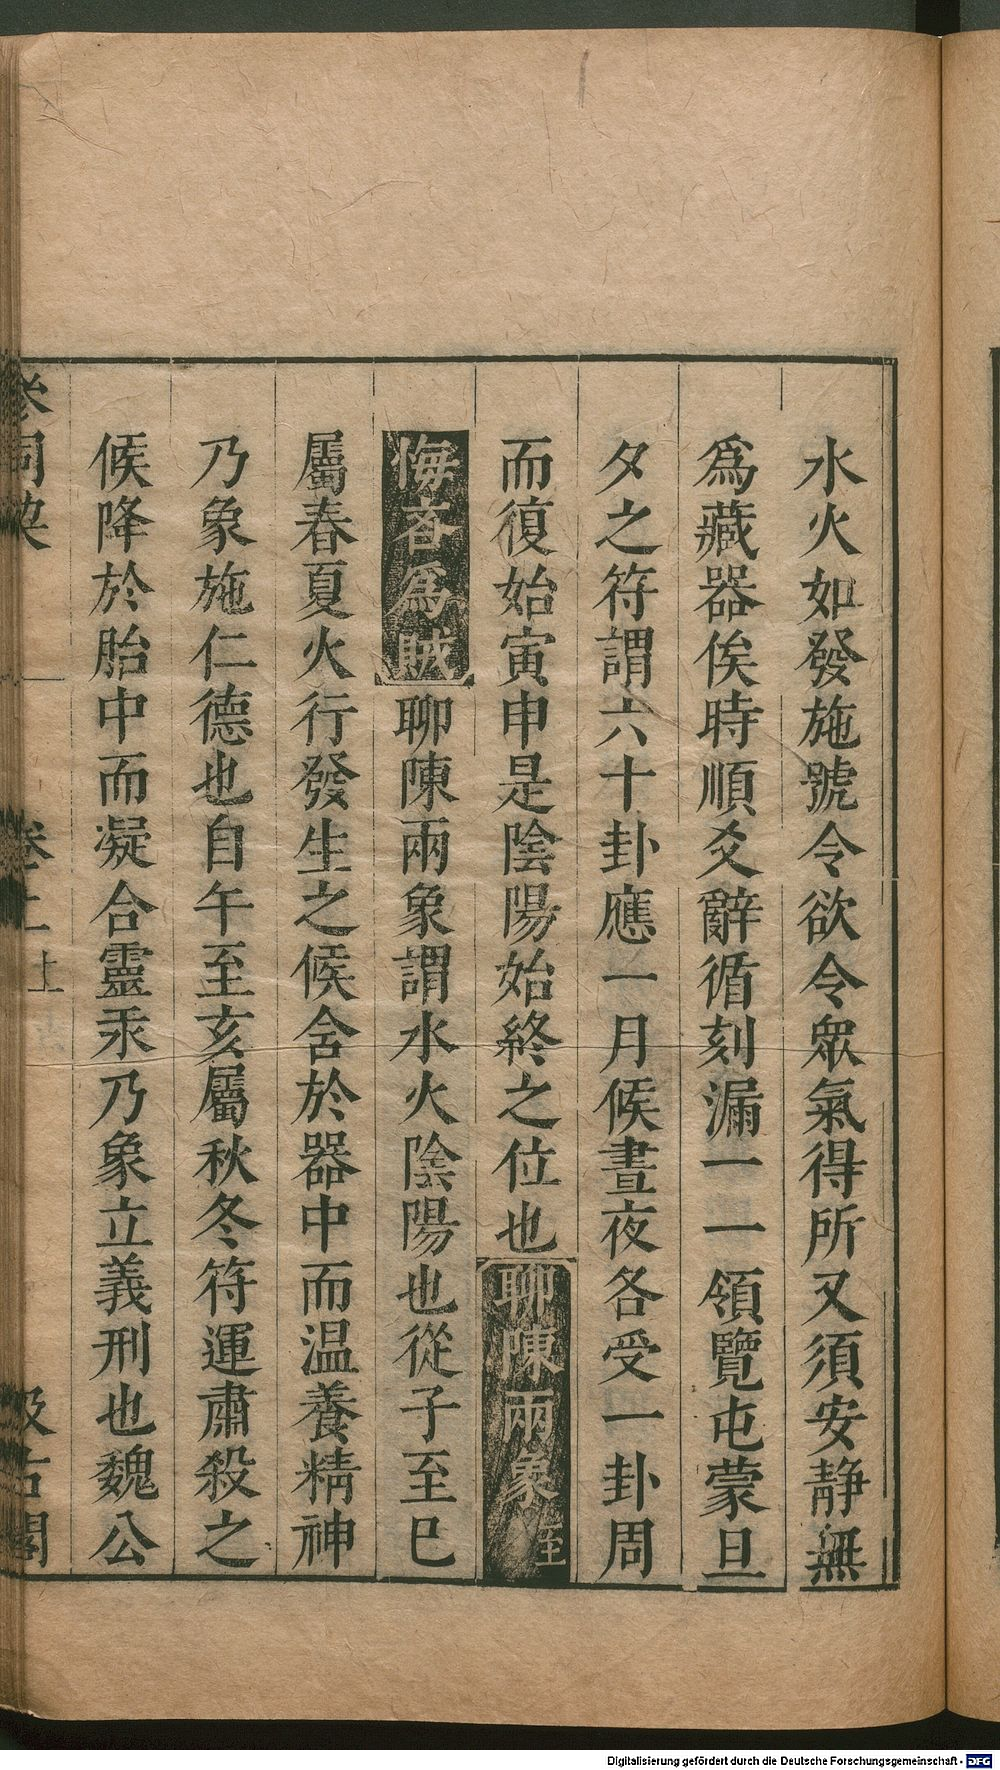 水火如發施號令欲令眾氣得所又須安靜無
爲藏器俟時順爻辭循刻漏一一領覽屯蒙旦
夕之符謂六十卦應一月候晝夜各受一卦周
而復始寅申是陰陽始終之位也聊陳兩象至
悔吝爲賊聊陳兩象謂水火陰陽也從子至巳
屬春夏火行發生之候含於器中而温養精神
乃象施仁德也自午至亥屬秋冬符運肅殺之
候降於胎中而凝合靈汞乃象立義刑也魏公
參同契 卷上 十 汲古閣
Digitalisierung gefördert durch die Deutsche Forschungsgemeinschaft - DFG